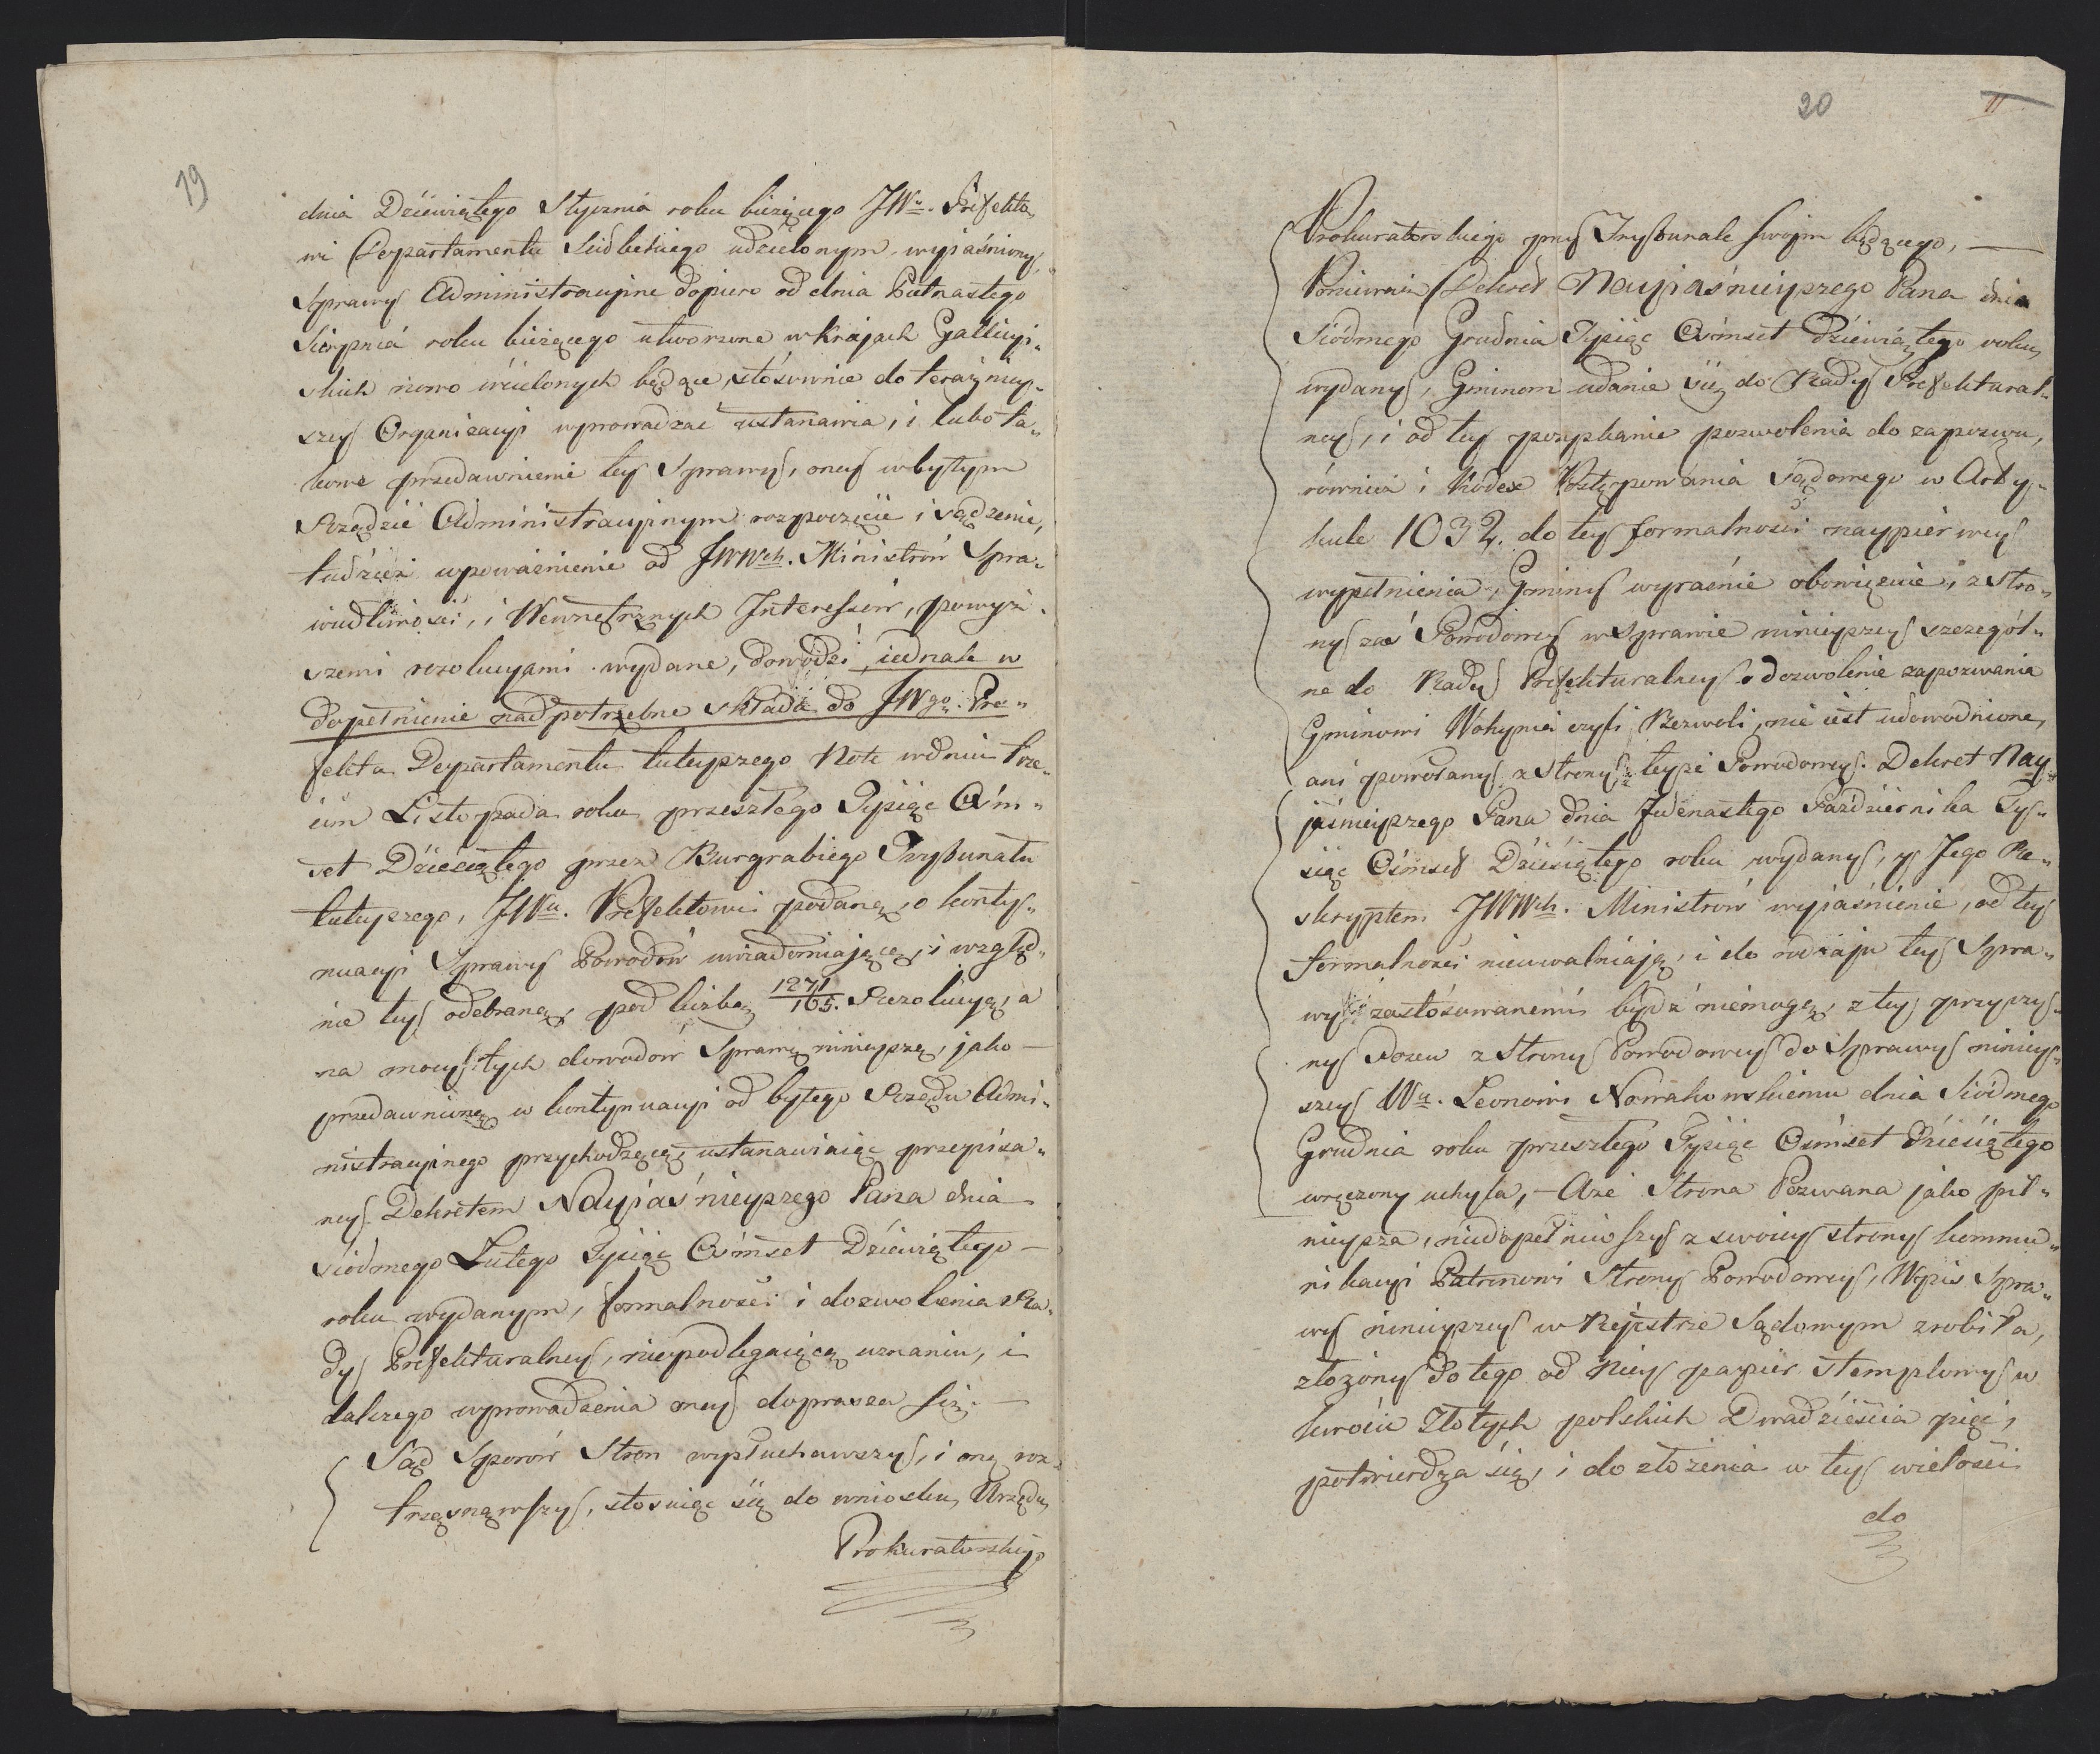 19
dnia Dziewiątego Stycznia roku bieżącego JWu. Prefekto„
wi Departamentu Siedleckiego udzielonym wyjaśniony,
Sprawy Administracyine dopiero od dnia Piętnastego
Sierpnia roku bieżącego utworzone w krajach Gallicyi„
skich nowo wcielonych będące, stósownie do terazniey„
szey Organizacyi wprowadzać ustanawia, i lubo ta„
kowe przedawnienie tey Sprawy, oney w byłym
Rządzie Administracyinym rozpoczęcie i sądzenie,
tudzież upoważnienie od JWWch. Ministrów Spra„
wiedliwości, i Wewnętrznych Interessów, powyż„
szemi rezolucyami wydane, dowodzi, iednak w
dopełnienie nadpotrzebne składa do JWgo. Pre„
fekta Departamentu tuteyszego Note w dniu trze„
cim Listopada roku przeszłego Tysiąc Ośm„
set Dziesiątego przez Burgrabiego Trybunału
tuteyszego, JWu. Prefektowi podaną, o konty„
nuacyi Sprawy Powodów uwiadomiającą, i wzglę„
nie tey odebraną, pod liczbą 1271/165. Rezolucyą, a
na mocy tych dowodów Sprawę ninieyszą, jako —
przedawnioną w kontynuacyi od byłego Rządu Admi„
nistracyinego przychodzącą, ustanawiaiąc przepisa„
ney Dekretem Nayjaśnieyszego Pana dnia
siódmego Lutego Tysiąc Ośmset Dziewiątego —
roku wydanym, formalności i dozwolenia Ra„
dy Prefekturalney, niepodlegaiącą uznaniu, i
dalszego wprowadzenia oney doprasza się. —
Sąd Sporów Stron wysłuchawszy, i onę roz„
trząsnąwszy, stosuiąc się do wniosku Urzędu
Prokuratorskiego
20
11
Prokuratorskiego przy Trybunale swojm będącego, —
Ponieważ Dekret Nayjaśnieyszego Pana dnia
Siódmego Grudnia Tysiąc Ośmset Dziewiątego roku
wydany, Gminom udanie się do Rady Prefektural„
ney, i od tey pozyskanie pozwolenia do zapozwu,
równie i Kodex Postępowania sądowego w Arty„
kule 1032. do tey formalności naypierwey
wypełnienia, Gminy wyraźnie obowięzuie, z stro„
ny zaś Powodowey w Sprawie ninieyszey szczegól„
ne do Rady Prefekturalney o dozwolenie zapozwania
Gminowi Wohynia czyli Bezwoli, nie iest udowodnione,
ani powołany z strony teyże Powodowey Dekret Nay„
jaśnieyszego Pana dnia Jedenastego Października Ty„
siąc Ośmset Dziesiątego roku wydany, y Jego Re„
skryptem JWWch. Ministrów wyjaśnienie, od tey
formalności nieuwalniają, i do rodzaju tey Spra„
wy zastósowanemi bydź niemogą, z tey przyczy„
ny Pozew z Strony Powodowey do Sprawy niniey„
szey Wu. Leonowi Nowakowskiemu dnia Siódmego
Grudnia roku przeszłego Tysiąc Ośmset Dziesiątego
wręczony uchyla, — Aże Strona Pozwana jako pil„
nieysza, niedopełniwszy z swoiey strony kommu„
nikacyi Patronowi Strony Powodowey, Wpis Spra„
wy ninieyszey w Rejestrze Sądowym zrobiła,
złożony do tego od Niey papier stemplowy w
kwocie Złotych polskich Dwadzieścia pięć,
potwierdza się, i do złożenia w tey wielości
do